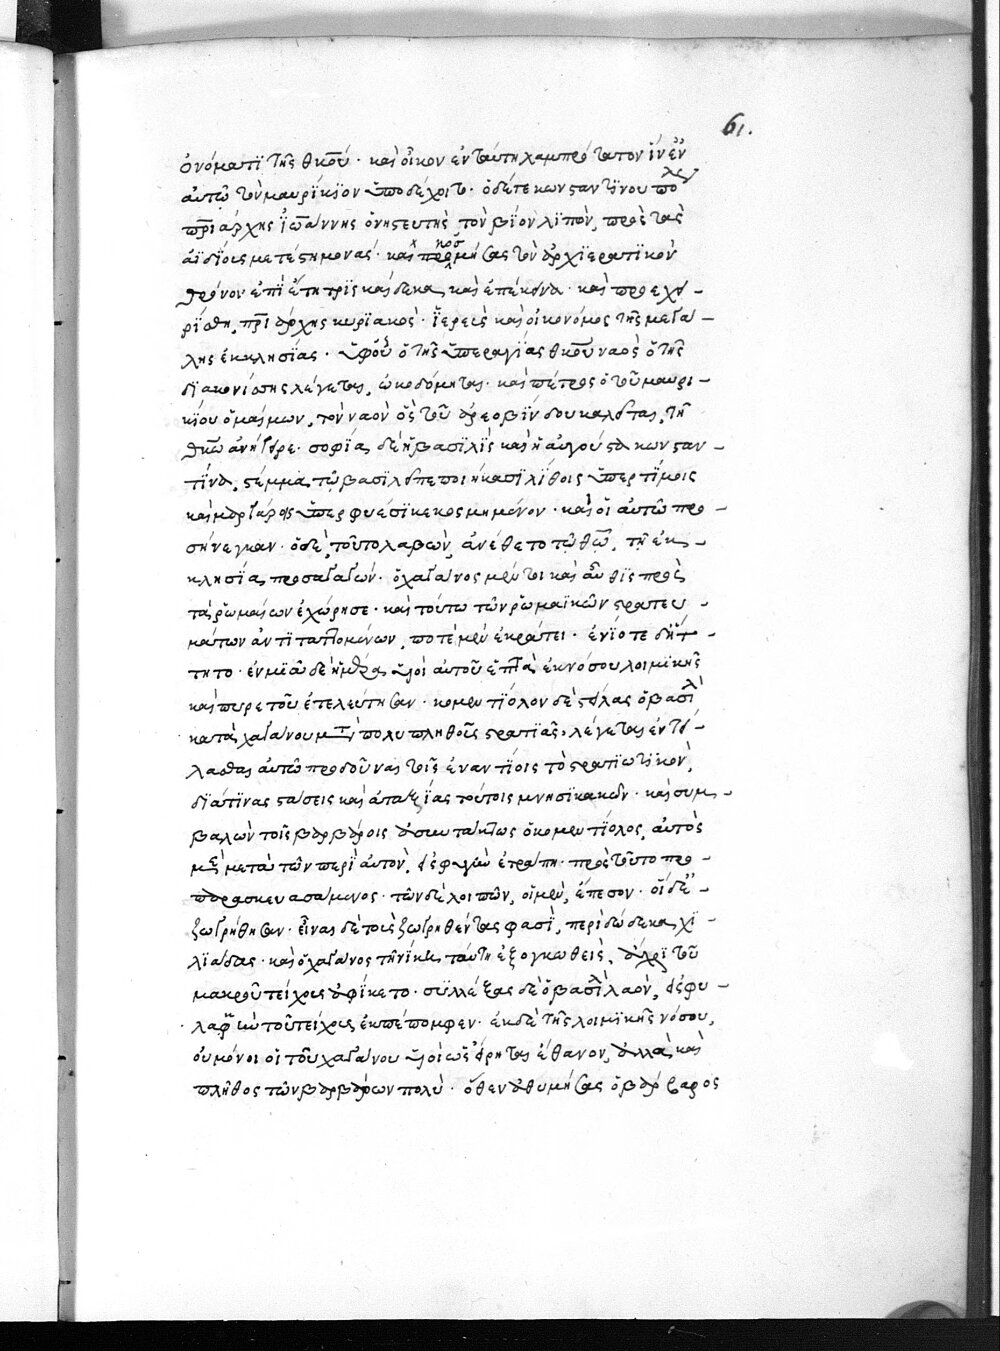 61.
ὀνόματι τῆς θκου · καὶ οἶκον ἐν ταύτῃ λαμπρότατον ἵν ἐν
αὐτῷ τὸν μαυρίκϊον ὑποδέχοιτο · ὁ δέ τε κωνσταντϊνουπόλεως
πρϊάρχης ϊωάννης ὁ νηστευτὴς τὸν βίον λιπὼν, πρὸς τὰς
ἀϊδίους μετέστη μονάς · καὶ προσμήσας τὸν ἀρχϊερατικὸν
θρόνον ἐπὶ ἔτη τρὶς καίδεκα, καὶ ἐπέκεινα · καὶ προεχει-
ρίσθη, πρϊάρχης κυριακὸς · ϊερεὺς καὶ οἰκονόμος τῆς μεγά-
λης ἐκκλησίας · ὑφ' οὗ ὁ τῆς ὑπεραγίας θκου ναὸς ὁ τῆς
διακονίσσης λέγεται, ὠκοδόμηται · καὶ πέτρος ὁ τοῦ μαυρι-
κίου ὁμαίμων, τὸν ναὸν ὃς τοῦ ἀρεοβίνδου καλεῖται, τῇ
θκω ἀνήγειρε · σοφία, δὲ ἡ βασϊλὶς καὶ ἡ αὐγούστα κωνσταν-
τίνα, στέμμα τῷ βασϊλεῖ πεποιήκασϊ λίθοις ὑπερτίμοις
καὶ μαργάροις ὑπερφυέσϊ κεκοσμημένον · καὶ οἳ αὐτῷ προ-
σήνεγκαν · ὁ δὲ, τοῦτο λαβὼν, ἀνέθετο τῷ θῶ, τῇ ἐκ-
κλησίᾳ προσαγαγών · ὁ χαγάνος μέντοι καὶ αὖθϊς πρὸς
τὰ ῥωμαίων ἐχώρησε · καὶ τούτω τῶν ῥωμαϊκῶν στρατευ-
μάτων ἀντιταττομένων, ποτὲ μὲν ἐκράτει · ἐνίοτε δ' ἥτ-
τητο · ἐν μϊᾷ δὲ ἡμέρᾳ υἱοὶ αὐτοῦ ἑπτὰ ἐκ νόσου λοιμϊκῆς
καὶ πυρετοῦ ἐτελεύτησαν · κομεντϊόλον δὲ στείλας ὁ βασιλ
κατὰ χαγάνου μετὰ πολυπληθοῦς στρατιᾶς, λέγεται ἐντεί-
λασθαι αὐτῷ προδοῦναι τοῖς ἐναντίοις τὸ στρατϊωτϊκὸν,
δϊά τϊνας στάσεις καὶ ἀταξίας τούτοις μνησϊκακῶν · καὶ συμ-
βαλὼν τοῖς βαρβάροις ἀσυντάκτως ὁ κομεντϊόλος, αὐτὸς
μὲν μετὰ τῶν περὶ αὐτὸν, εἰς φυγὴν ἐτράπη · πρὸς τοῦτο προ-
παρασκευασάμενος · τῶν δὲ λοιπῶν, οἱ μὲν, ἔπεσον · οἱ δὲ ἐ-
ζωγρήθησαν · εἶναι δὲ τοὺς ζωγρηθέντας φασὶ, περὶ δώδεκα χϊ-
λϊάδας · καὶ ὁ χαγάνος τῇ νίκῃ ταύτῃ ἐξογκωθεὶς, ἄχρι τοῦ
μακροῦ τείχους ἀφίκετο · συλλέξας δὲ ὁ βασιλ λαὸν, εἰς φυ-
λακὴν τοῦ τείχους ἐκπέπομφεν · ἐκ δὲ τῆς λοιμϊκῆς νόσου,
οὐ μόνοι οἱ τοῦ χαγάνου υἱοὶ ὡς εἴρηται ἔθανον, ἀλλὰ καὶ
πλῆθος τῶν βαρβάρων πολύ · ὅθεν ἀθυμήσας ὁ βάρβαρος